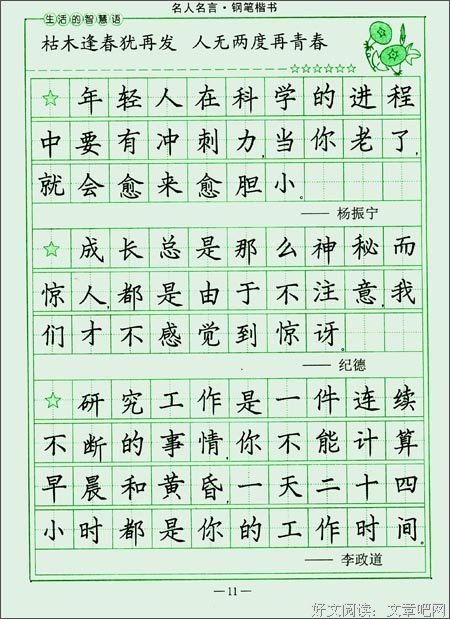 名人名言·钢笔楷书
生活的智慧语
枯木逢春犹再发 人无两度再青春
☆年轻人在科学的进程
中要有冲刺力,当你老了,
就会愈来愈胆小。
—— 杨振宁
☆成长总是那么神秘而
惊人,都是由于不注意,我
们才不感觉到惊讶。
—— 纪德
☆研究工作是一件连续
不断的事情,你不能计算
早晨和黄昏,一天二十四
小时都是你的工作时间。
—— 李政道
— 11 —
好文阅读:文章吧网